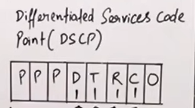 Differentiated Services Code
Point (DSCP)
P P P D T R C O